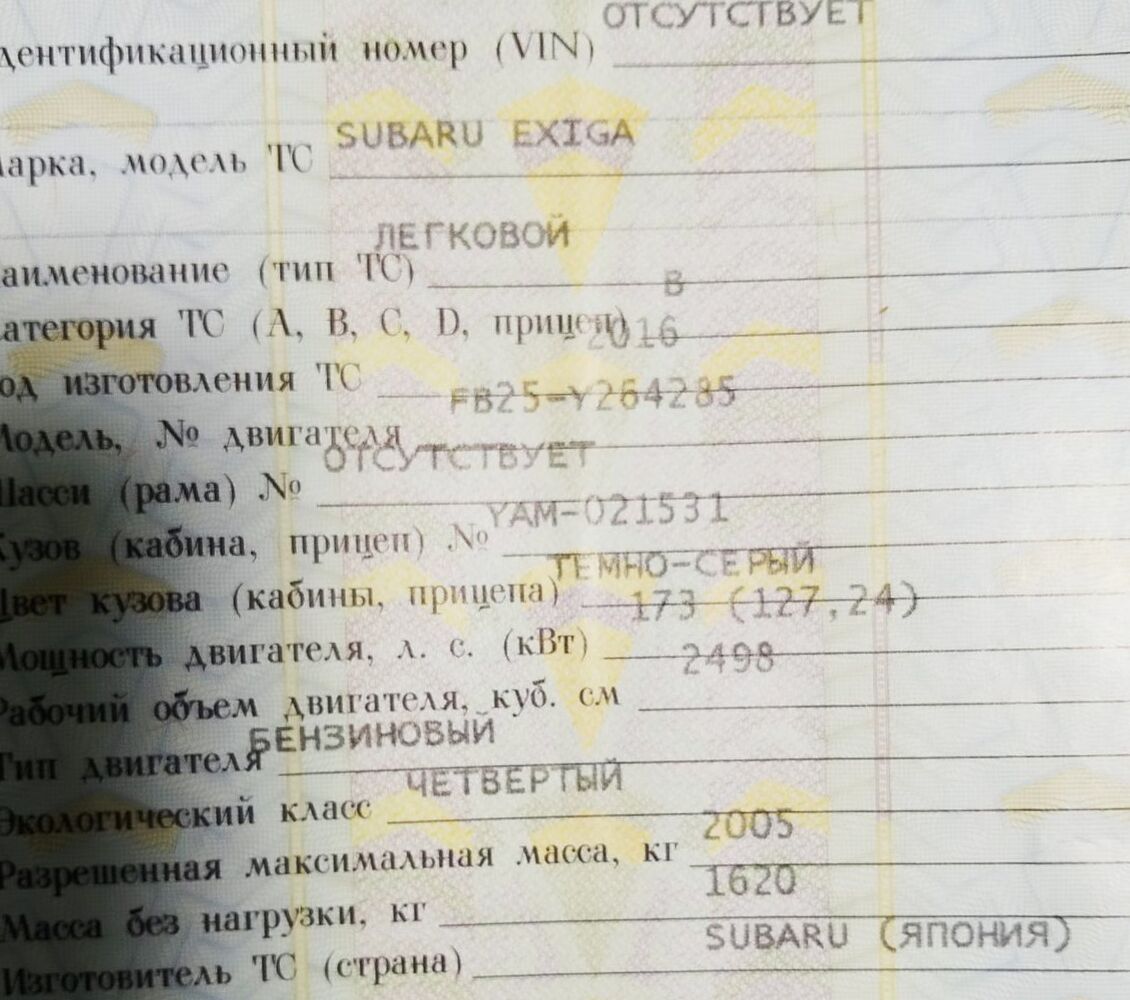 ОТСУТСТВУЕТ
дентификационный номер (VIN)
SUBARU EXIGA
арка, модель ТС
ЛЕГКОВОЙ
аименование (тип ТС)
B
атегория ТС (A, B, C, D, прицеп)
2016
од изготовления ТС
FB25-Y264285
Модель, № двигателя
ОТСУТСТВУЕТ
Шасси (рама) №
YAM-021531
Кузов (кабина, прицеп) №
ТЕМНО-СЕРЫЙ
Цвет кузова (кабины, прицепа)
173 (127,24)
Мощность двигателя, л. с. (кВт)
2498
Рабочий объем двигателя, куб. см
БЕНЗИНОВЫЙ
Тип двигателя
ЧЕТВЕРТЫЙ
Экологический класс
2005
Разрешенная максимальная масса, кг
1620
Масса без нагрузки, кг
SUBARU (ЯПОНИЯ)
Изготовитель ТС (страна)